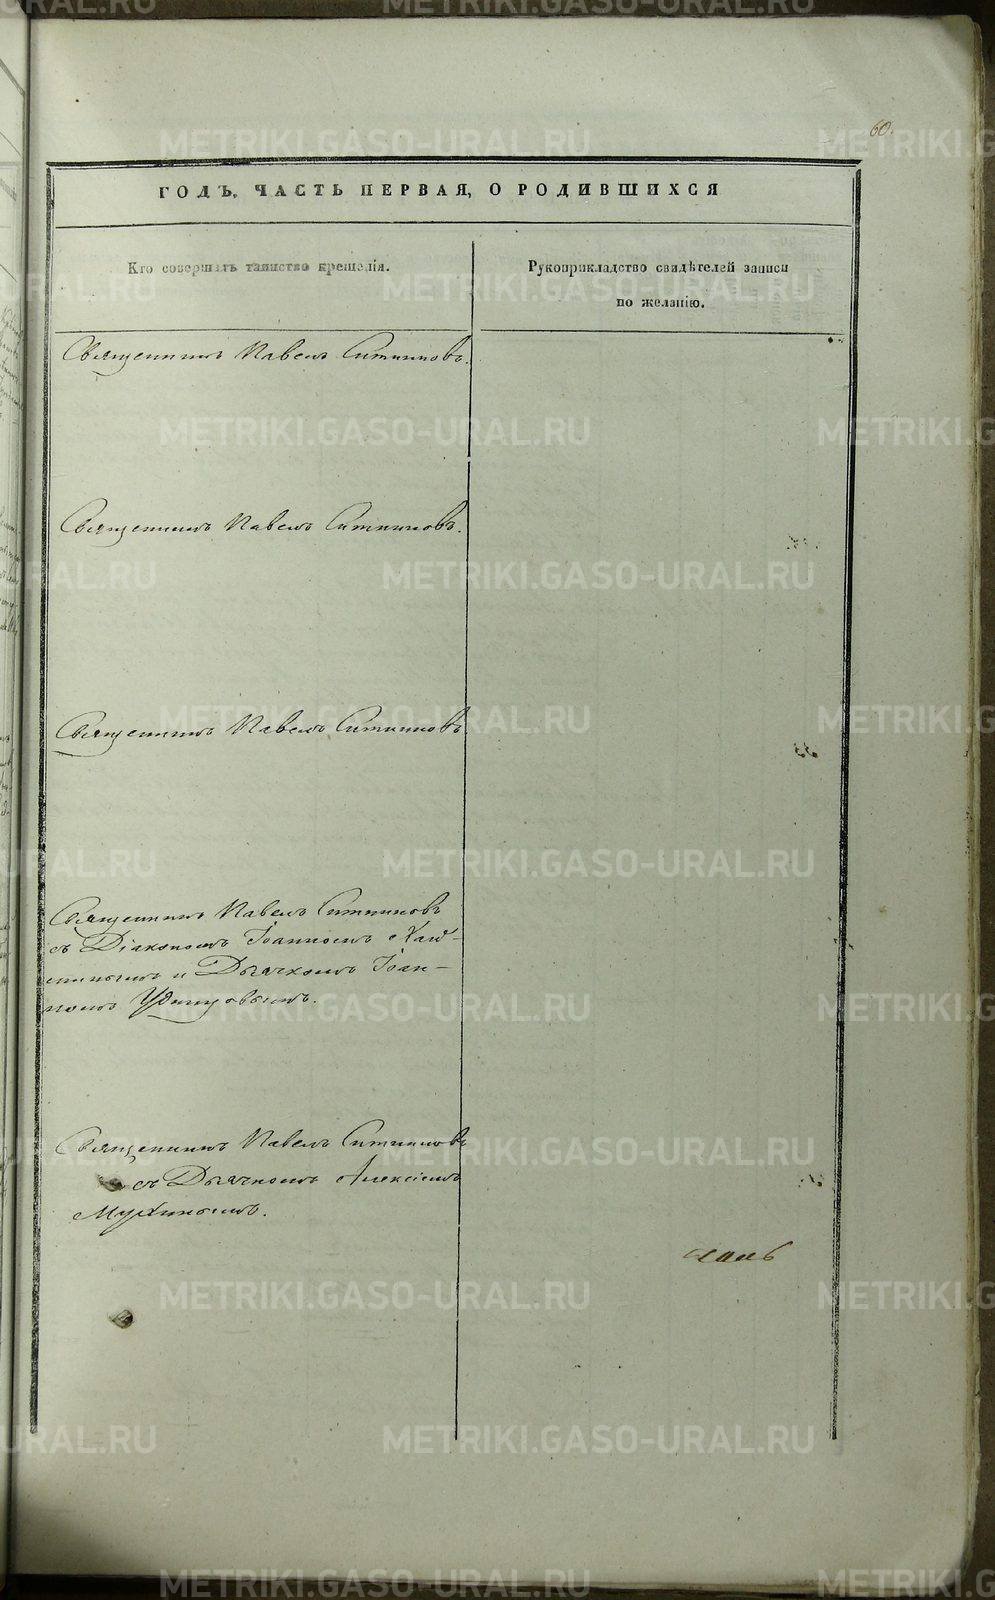 60.
ГОДЪ, ЧАСТЬ ПЕРВАЯ, О РОДИВШИХСЯ
Кто совершалъ таинство крещенія.
Рукоприкладство свидѣтелей записи
по желанію.
Священникъ Павелъ Ситниковъ.
Священникъ Павелъ Ситниковъ.
Священникъ Павелъ Ситниковъ
Священникъ Павелъ Ситниковъ
съ Діакономъ Іоанномъ
и Дьячкомъ Іоан-
номъ Удинцовымъ.
Священникъ Павелъ Ситниковъ
съ Дьячкомъ Алексіемъ
Мухинымъ.
METRIKI.GASO-URAL.RU